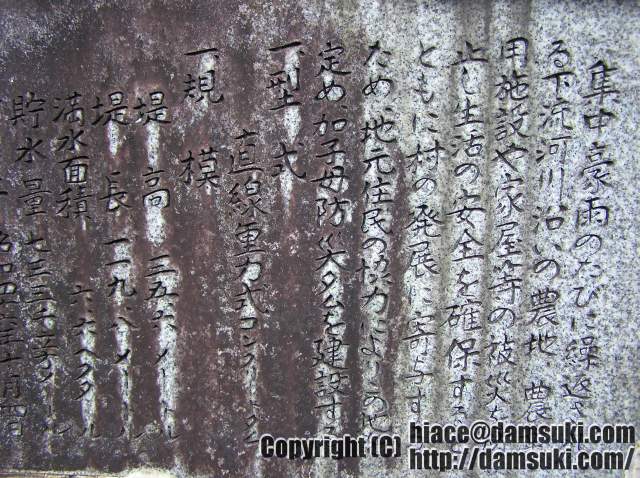 集中豪雨のたびに繰返さ
る下流河川沿いの農地 農
用施設や家屋等の被災を
止し生活の安全を確保する
ともに村の発展に寄与す
ため、地元住民の協力によりこの地
定め、加子母防災ダムを建設する
一、型式
直線重力式コンクリートダム
一規模
堤高 三五.六メートル
堤長 一一九.八メートル
満水面積 六.六ヘクタ
貯水量 七三三千立
Copyright (C) hiace@damsuki.com
http://damsuki.com/